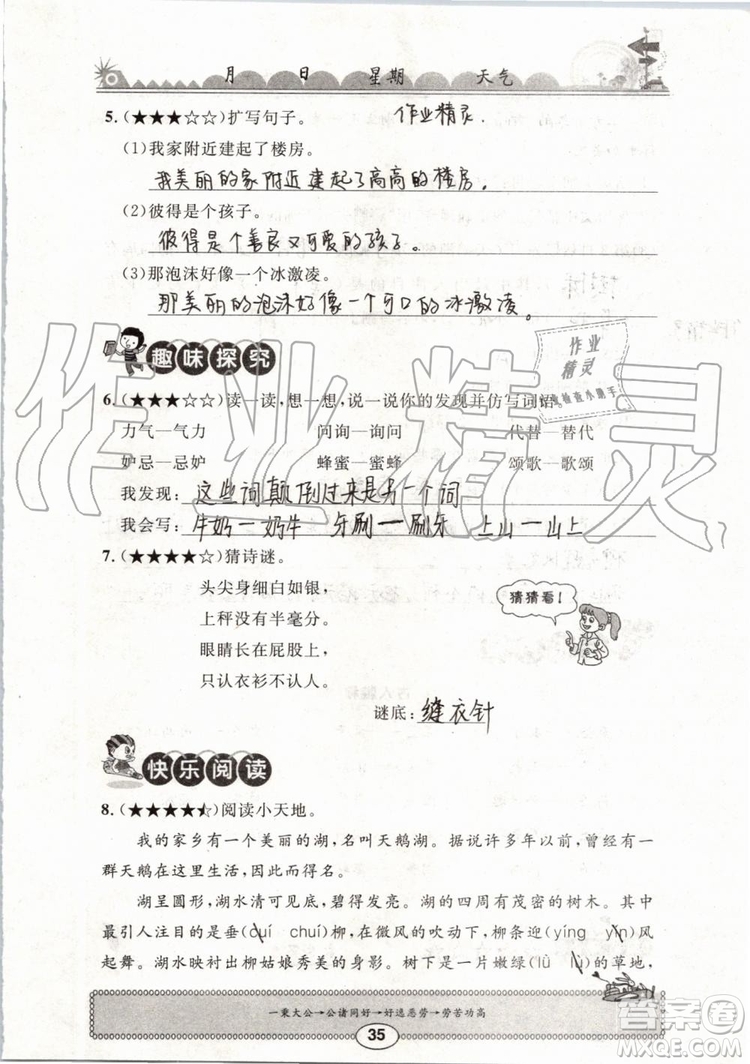 月 日 星期 天气
5.(★★★☆☆)扩写句子。 作业精灵.
(1)我家附近建起了楼房。
我美丽的家附近建起了高高的楼房。
(2)彼得是个孩子。
彼得是个善良又可爱的孩子。
(3)那泡沫好像一个冰激凌。
那美丽的泡沫好像一个可口的冰激凌。
趣味探究
作业
精灵
作业精灵
6.(★★★☆☆)读一读,想一想,说一说你的发现并仿写词语。
力气—气力 问询—询问 代替—替代
妒忌—忌妒 蜂蜜—蜜蜂 颂歌—歌颂
我发现:这些词颠倒过来是另一个词
我会写:牛奶—奶牛 牙刷—刷牙 上山—山上
7.(★★★★☆)猜诗谜。
头尖身细白如银,
上秤没有半毫分。
眼睛长在屁股上,
只认衣衫不认人。
猜猜看!
谜底:缝衣针
快乐阅读
8.(★★★★⯪)阅读小天地。
我的家乡有一个美丽的湖,名叫天鹅湖。据说许多年以前,曾经有一
群天鹅在这里生活,因此而得名。
湖呈圆形,湖水清可见底,碧得发亮。湖的四周有茂密的树木。其中
最引人注目的是垂(cuí chuí)柳,在微风的吹动下,柳条迎(yíng yín)风
起舞。湖水映衬出柳姑娘秀美的身影。树下是一片嫩绿(lǜ lù)的草地,
一秉大公→公诸同好→好逸恶劳→劳苦功高
35
答案圈
MXQE.COM